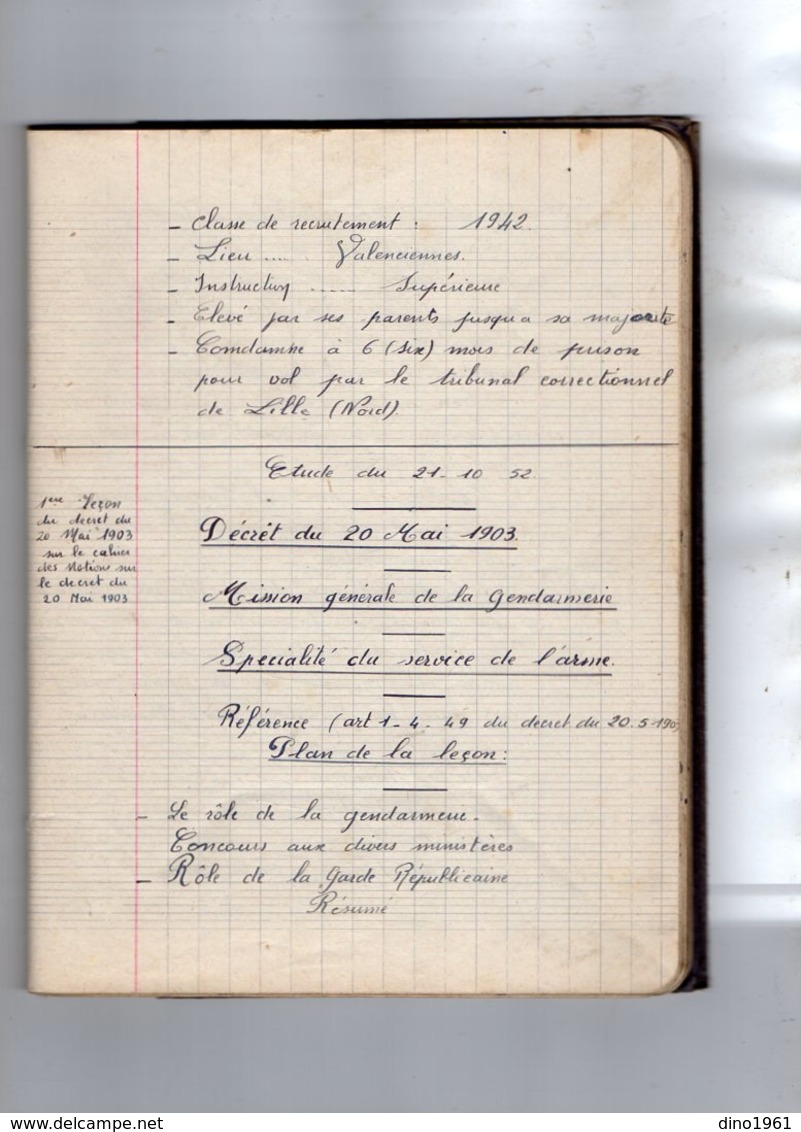 - Classe de recrutement : 1942.
- Lieu ......... Valenciennes.
- Instruction ...... Supérieure
- Elevé par ses parents jusqu'a sa majorité
- Comdamné à 6 (six) mois de prison
pour vol par le tribunal correctionnel
de Lille (Nord).
Etude du 21-10 52.
1ere Leçon
du decret du
20 Mai 1903
sur le cahier
des Notions sur
le decret du
20 Mai 1903
Décrêt du 20 Mai 1903.
Mission générale de la Gendarmerie
Spécialité du service de l'arme.
Référence (art 1-4-49 du decret du 20-5-190
Plan de la leçon:
- Le rôle de la gendarmerie.
Concours aux divers ministères
- Rôle de la Garde Républicaine
Résumé
www.delcampe.net
dino1961